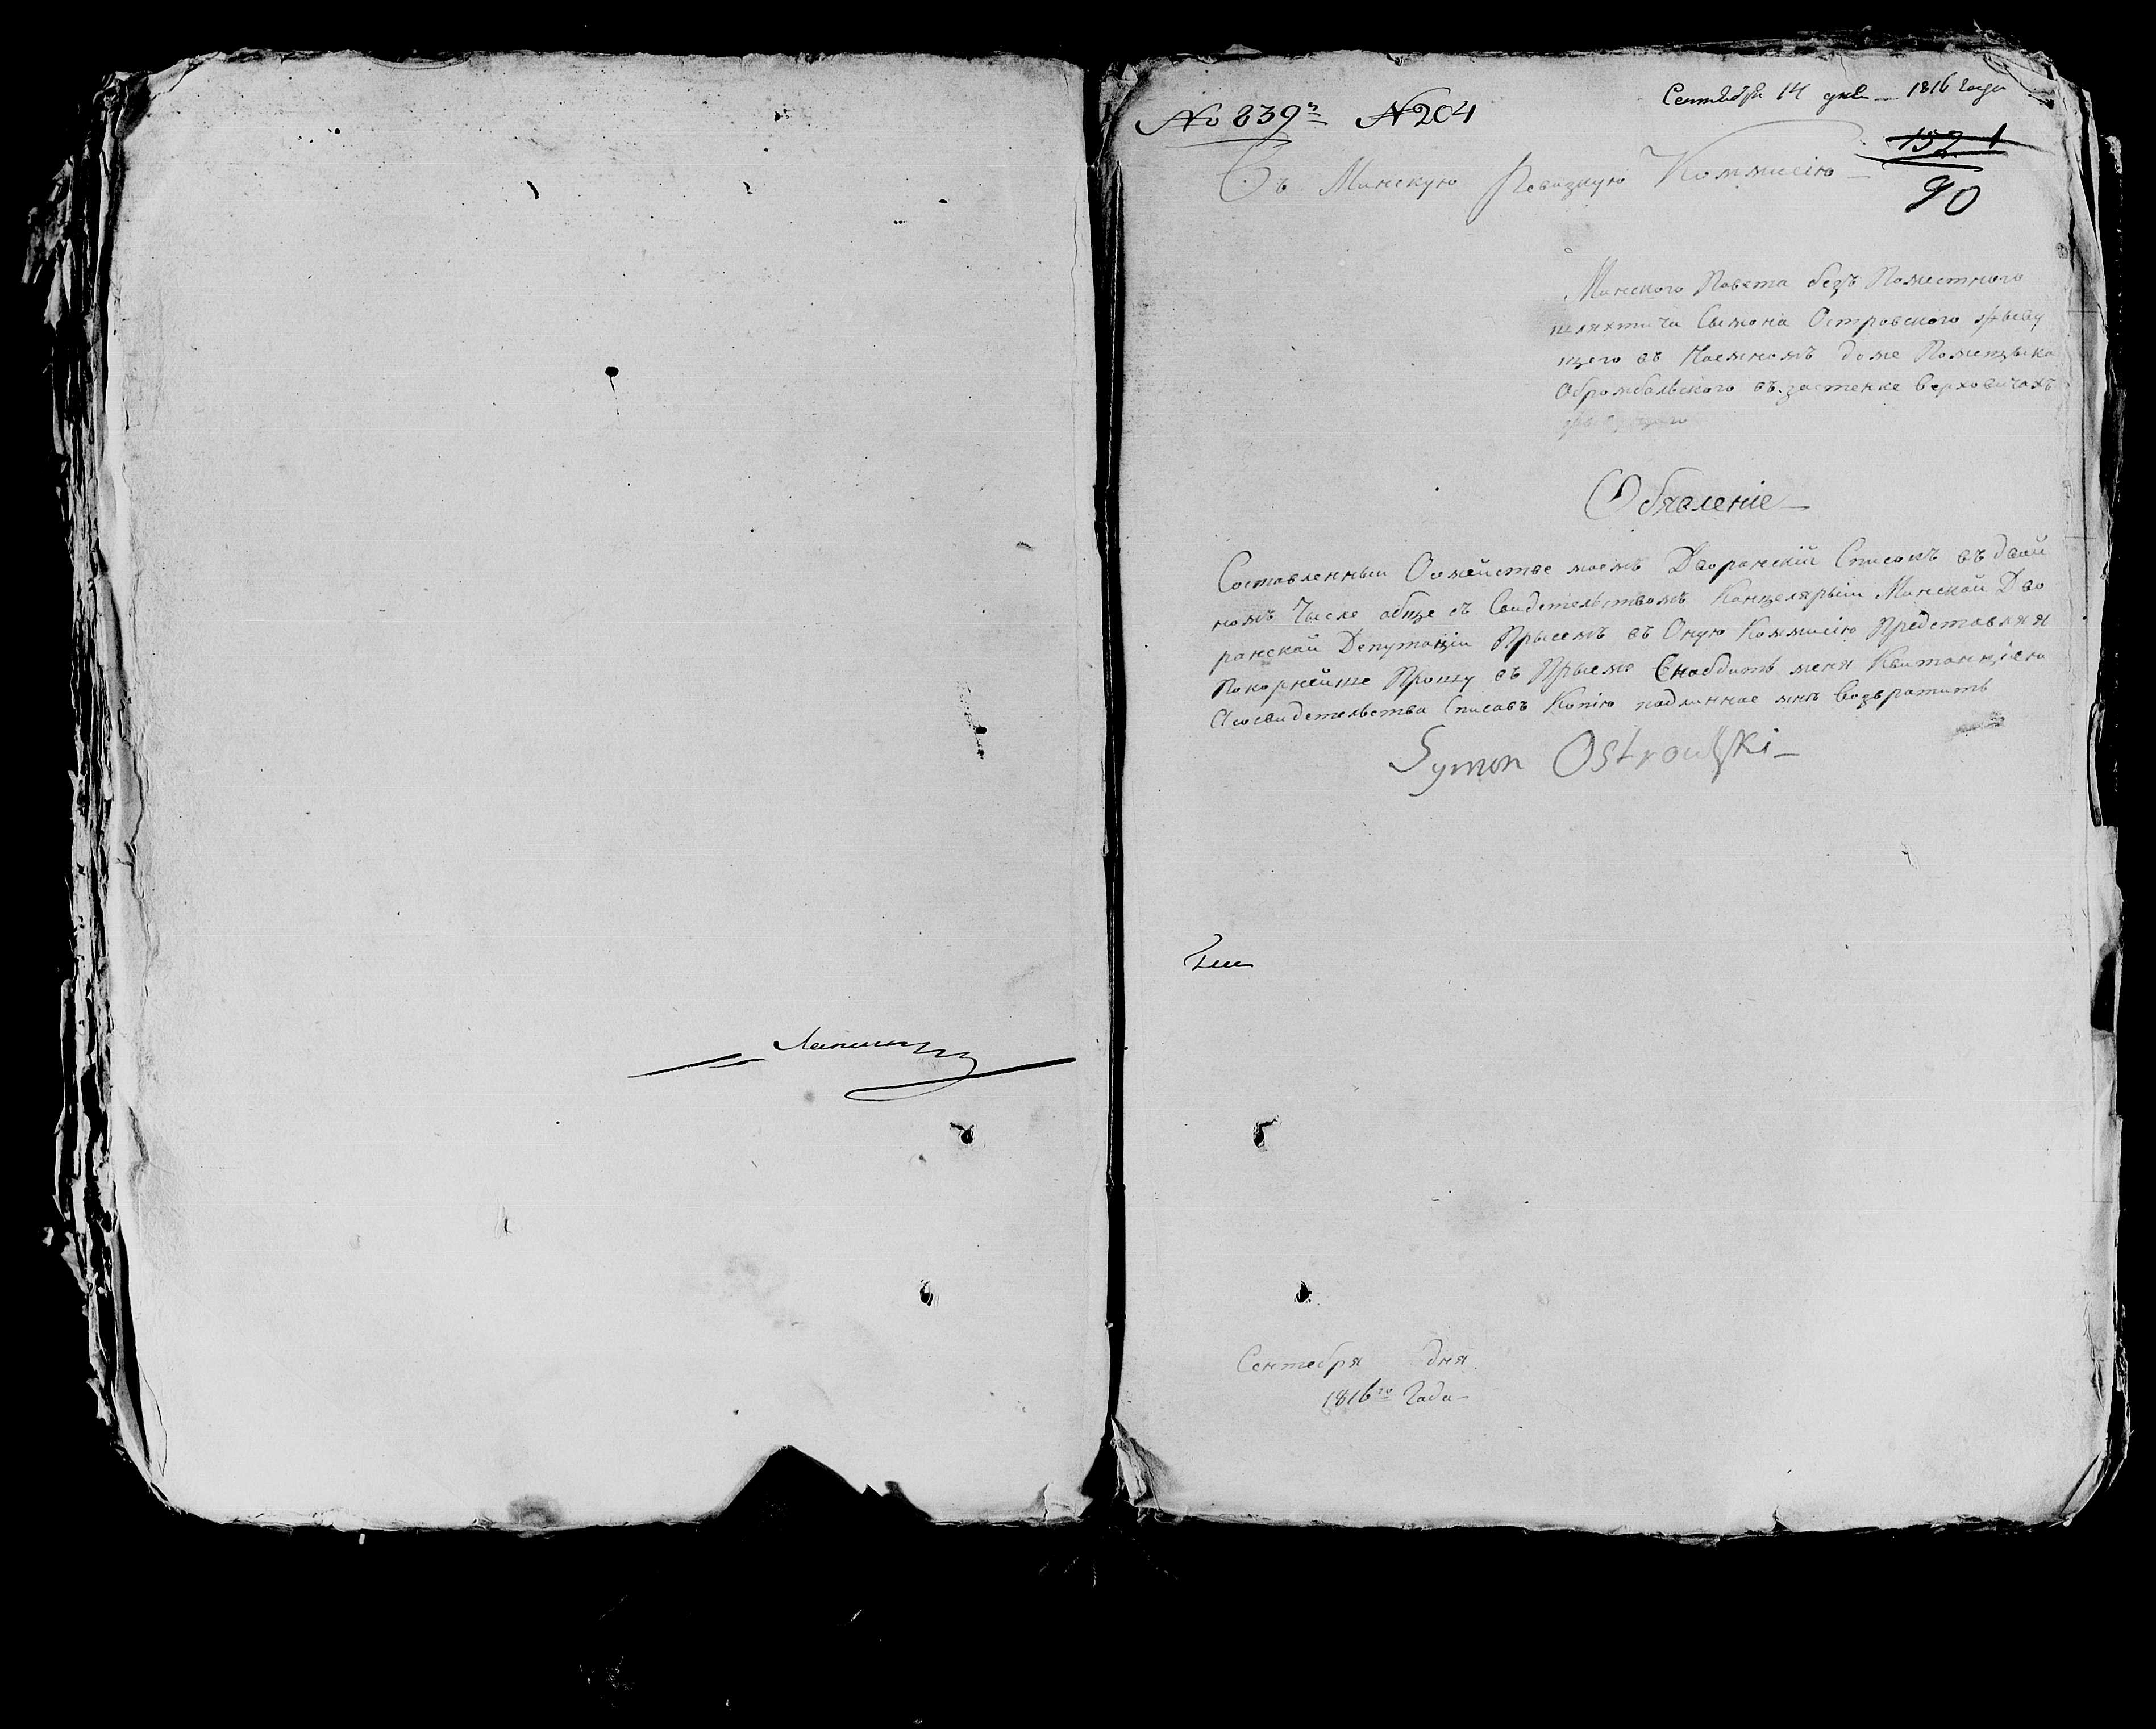 No 239 N 204
Сентября 14 дня 1816 года
152 1
90
Въ Минскую Ревизкую Коммисію
Минского Повета безъ Поместного
шляхтича Сымона Островского жыву
щего въ Наемномъ доме Помещыка
въ застенке Верховичахъ
Обявленіе
Составленныи О семействе моемъ Дворанскій Списокъ въ двой
номъ Числе обще съ Свидетельствомъ Канцелярыи Минской Дво
ранской Депутаціи Прысемъ въ Оную Коммисію Представляя
Покорнейше Прошу въ Прыеме Снабдить меня Квитанціею
Асосвидетельства Списавъ Копію подлинное мне Возвратить
Symon Ostrowski
Сентебря дня
1816го Года